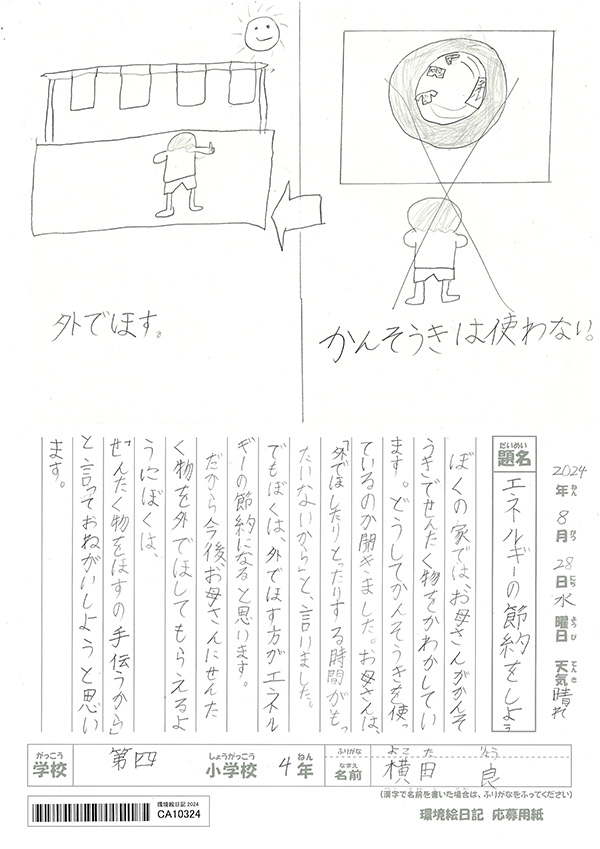 かんそうきは使わない。
外でほす。
2024年8月28日水曜日 天気晴れ
ねん がつ にち ようび てんき
だいめい
題名 エネルギーの節約をしよう
ぼくの家では、お母さんがかんそ
うきでせんたく物をかわかしてい
ます。どうしてかんそうきを使っ
ているのか聞きました。お母さんは、
「外でほしたりとったりする時間がもっ
たいないから」と、言いました。
でもぼくは、外でほす方がエネル
ギーの節約になると思います。
だから今後、お母さんにせんた
く物を外でほしてもらえるよ
うにぼくは、
「せんたく物をほすの手伝うから」
と言っておねがいしようと思い
ます。
がっこう しょうがっこう ねん ふりがな よこ た りょう
学校 第四 小学校 4年 なまえ 名前 横田 良
(漢字で名前を書いた場合は、ふりがなをふってください)
環境絵日記 2024
CA10324
環境絵日記 応募用紙